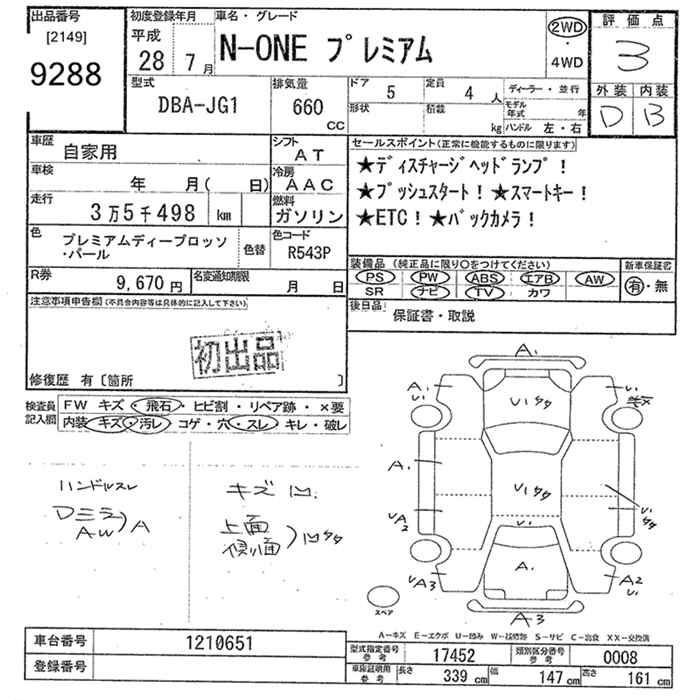 出品番号
[2149]
9288
初度登録年月
平成
28年7月
車名・グレード
N-ONE プレミアム
2WD
・
4WD
評価点
3
外装 内装
D B
型式
DBA-JG1
排気量
660
CC
ドア
5
定員
4人
形状
積載
kg
ディーラー・並行
モデル年式 年
ハンドル 左・右
車歴
自家用
シフト
AT
車検
年 月( 日)
冷房
AAC
走行
3万5千498 km
燃料
ガソリン
色
プレミアムディープロッソ
・パール
色替
色コード
R543P
R券
9,670円
名変通知期限
月 日
セールスポイント(正常に機能するものに限ります)
★ディスチャージヘッドランプ!
★プッシュスタート!★スマートキー!
★ETC!★バックカメラ!
装備品 (純正品に限り○をつけてください)
PS PW ABS エアB AW
SR ナビ TV カワ
新車保証書
有・無
後日品
保証書・取説
注意事項申告欄(不具合内容等は具体的に記入して下さい)
初出品
修復歴 有〔箇所 〕
検査員
記入欄
FW キズ・飛石・ヒビ割・リペア跡・×要
内装 キズ・汚レ・コゲ・穴・スレ・キレ・破レ
ハンドルスレ
Dミラ
AW
)A
キズ 凹.
上面
側面
)凹タタ
A1
A1
U1
U1タタ
U1
A1
U1タタ
UA2
U1
U1タタ
UA3
A1
A2
U1
A3
スペア
A-キズ E-エクボ U-凹み W-波補跡 S-サビ C-腐食 XX-交換済
車台番号
1210651
登録番号
型式指定番号
参考
17452
類別区分番号
参考
0008
車体証明用
参考
長さ 339cm
幅 147cm
高さ 161cm